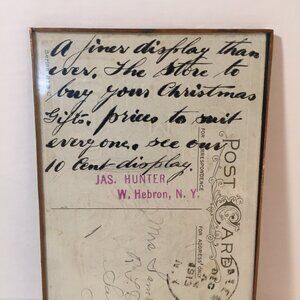 A finer display than
ever. The store to
buy your Christmas
Gifts. prices to suit
everyone. see our
10 Cent display.
JAS. HUNTER,
W. Hebron, N. Y.
POST CARD
FOR CORRESPONDENCE
FOR ADDRESS ONLY
DEC
Mrs